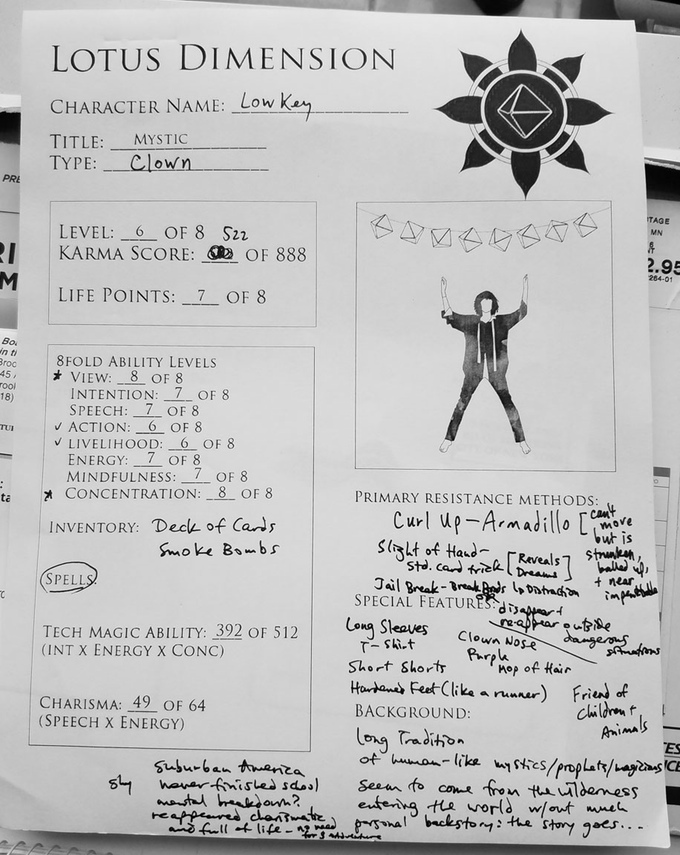 LOTUS DIMENSION
CHARACTER NAME: Low Key
TITLE: MYSTIC
TYPE: Clown
LEVEL: 6 OF 8 522
KARMA SCORE: OF 888
LIFE POINTS: 7 OF 8
8FOLD ABILITY LEVELS
* VIEW: 8 OF 8
INTENTION: 7 OF 8
SPEECH: 7 OF 8
✓ ACTION: 6 OF 8
✓ LIVELIHOOD: 6 OF 8
ENERGY: 7 OF 8
MINDFULNESS: 7 OF 8
* CONCENTRATION: 8 OF 8
INVENTORY: Deck of Cards
Smoke Bombs
SPELLS:
TECH MAGIC ABILITY: 392 OF 512
(INT X ENERGY X CONC)
CHARISMA: 49 OF 64
(SPEECH X ENERGY)
Suburban America
shy never finished school
mental breakdown?
reappeared charismatic
and full of life - no need
for sustenance
PRIMARY RESISTANCE METHODS:
Curl Up - Armadillo [can't
move
but is
shrunken,
balled up,
+ near
impenetrable
Slight of Hand -
Std. card trick [Reveals
Dreams]
Jail Break - Break Bonds
OR
↳ Distraction
SPECIAL FEATURES:
disappear +
reappear outside
dangerous
situations
Long Sleeves
T-Shirt
Clown Nose
Purple
Mop of Hair
Short Shorts
Hardened Feet (like a runner)
Friend of
Children +
Animals
BACKGROUND:
Long Tradition
of human-like mystics/prophets/magicians
seem to come from the wilderness
entering the world w/out much
personal backstory: the story goes...
PRE
RI
M
Bo
in t
Broo
45
rool
18)
TU
ta
TAGE
MN
2.95
264-01
ES
ICE